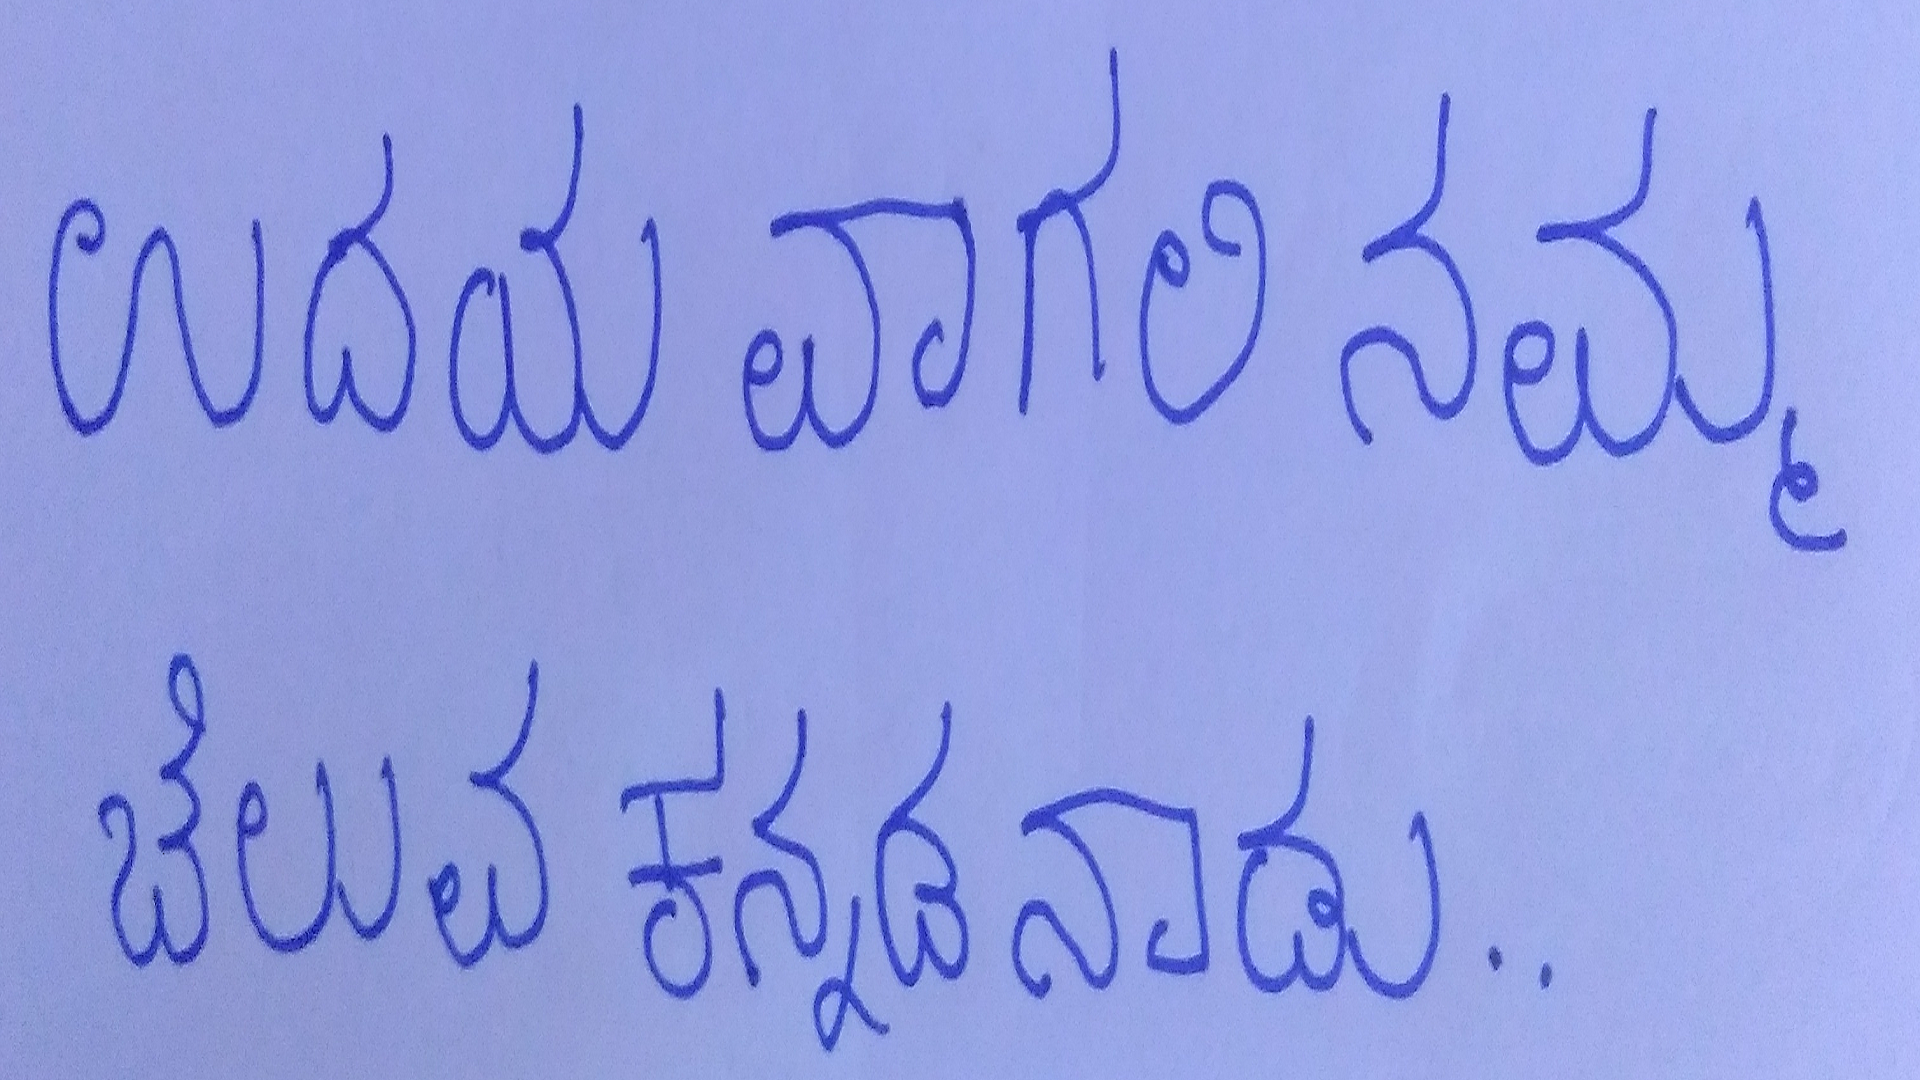 ಉದಯ ವಾಗಲಿ ನಮ್ಮ
ಚೆಲುವ ಕನ್ನಡ ನಾಡು..